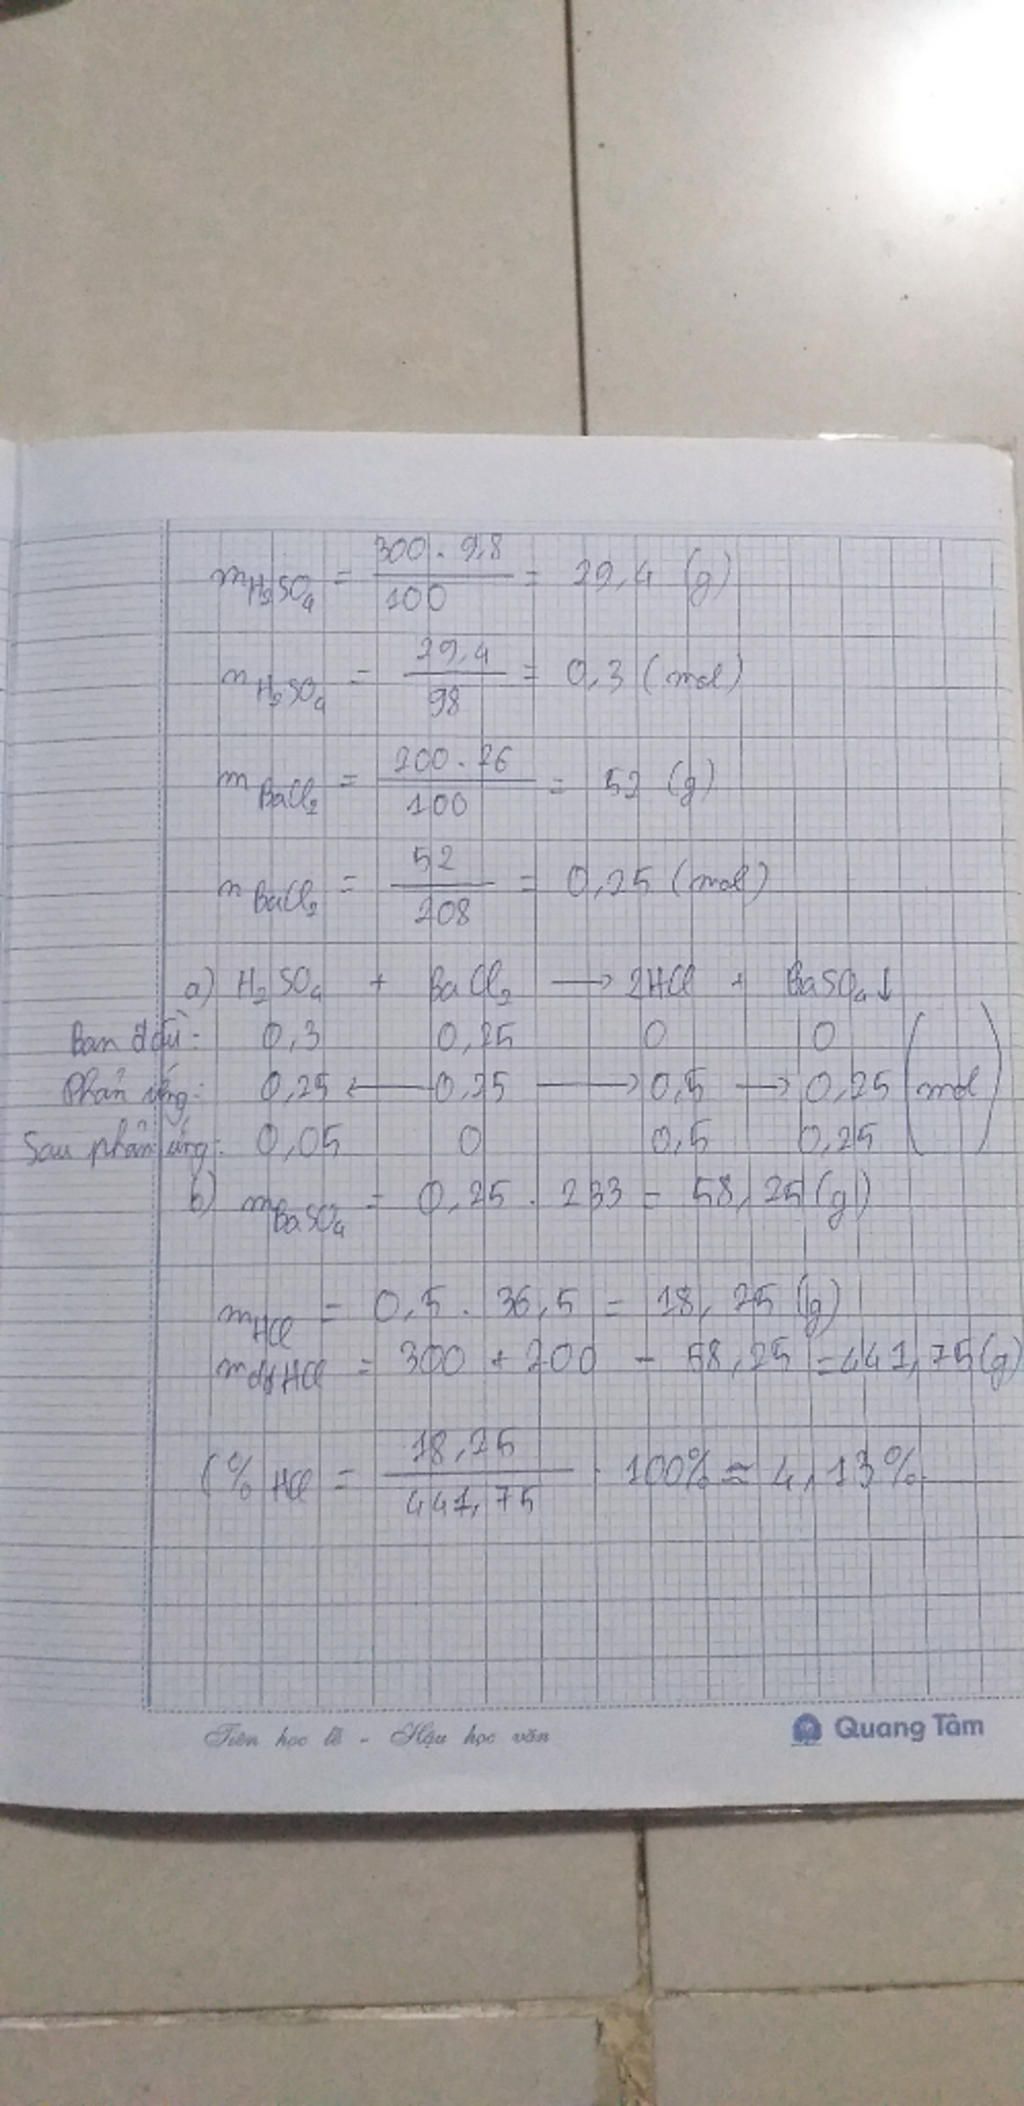 m H₂SO₄ = 300 . 9,8 / 100 = 29,4 (g)
n H₂SO₄ = 29,4 / 98 = 0,3 (mol)
m BaCl₂ = 200 . 26 / 100 = 52 (g)
n BaCl₂ = 52 / 208 = 0,25 (mol)
a) H₂SO₄ + BaCl₂ → 2HCl + BaSO₄↓
Ban đầu: 0,3 0,25 0 0
Phản ứng: 0,25 ← 0,25 → 0,5 → 0,25 (mol)
Sau phản ứng: 0,05 0 0,5 0,25
b) m BaSO₄ = 0,25 . 233 = 58,25 (g)
m HCl = 0,5 . 36,5 = 18,25 (g)
m dd HCl = 300 + 200 - 58,25 = 441,75 (g)
C% HCl = 18,25 / 441,75 . 100% ≈ 4,13%
Tiên học lễ - Hậu học văn
Quang Tâm